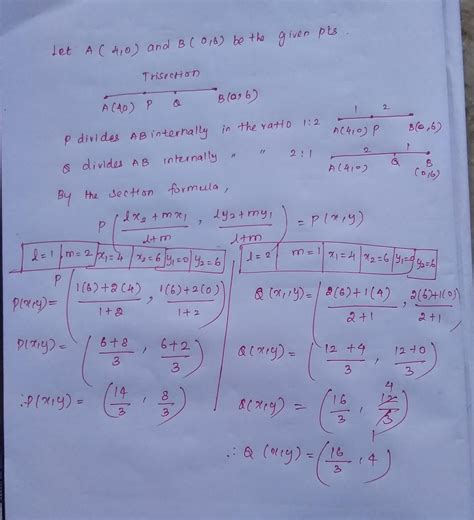 Let A(4,0) and B(0,6) be the given pts.
Trisection
A(4,0) P Q B(0,6)
P divides AB internally in the ratio 1:2
1 2
A(4,0) P B(0,6)
Q divides AB internally " " 2:1
2 1
A(4,0) Q B(0,6)
By the section formula,
P( (lx2+mx1)/(l+m) , (ly2+my1)/(l+m) ) = P(x,y)
l=1 m=2 x1=4 x2=6 y1=0 y2=6
P
P(x,y) = ( (1(6)+2(4))/(1+2) , (1(6)+2(0))/(1+2) )
P(x,y) = ( (6+8)/3 , (6+2)/3 )
∴P(x,y) = ( 14/3 , 8/3 )
l=2 m=1 x1=4 x2=6 y1=0 y2=6
Q(x,y) = ( (2(6)+1(4))/(2+1) , (2(6)+1(0))/(2+1) )
Q(x,y) = ( (12+4)/3 , (12+0)/3 )
Q(x,y) = ( 16/3 , 12/3 ) 4 1
∴ Q(x,y) = ( 16/3 , 4 )